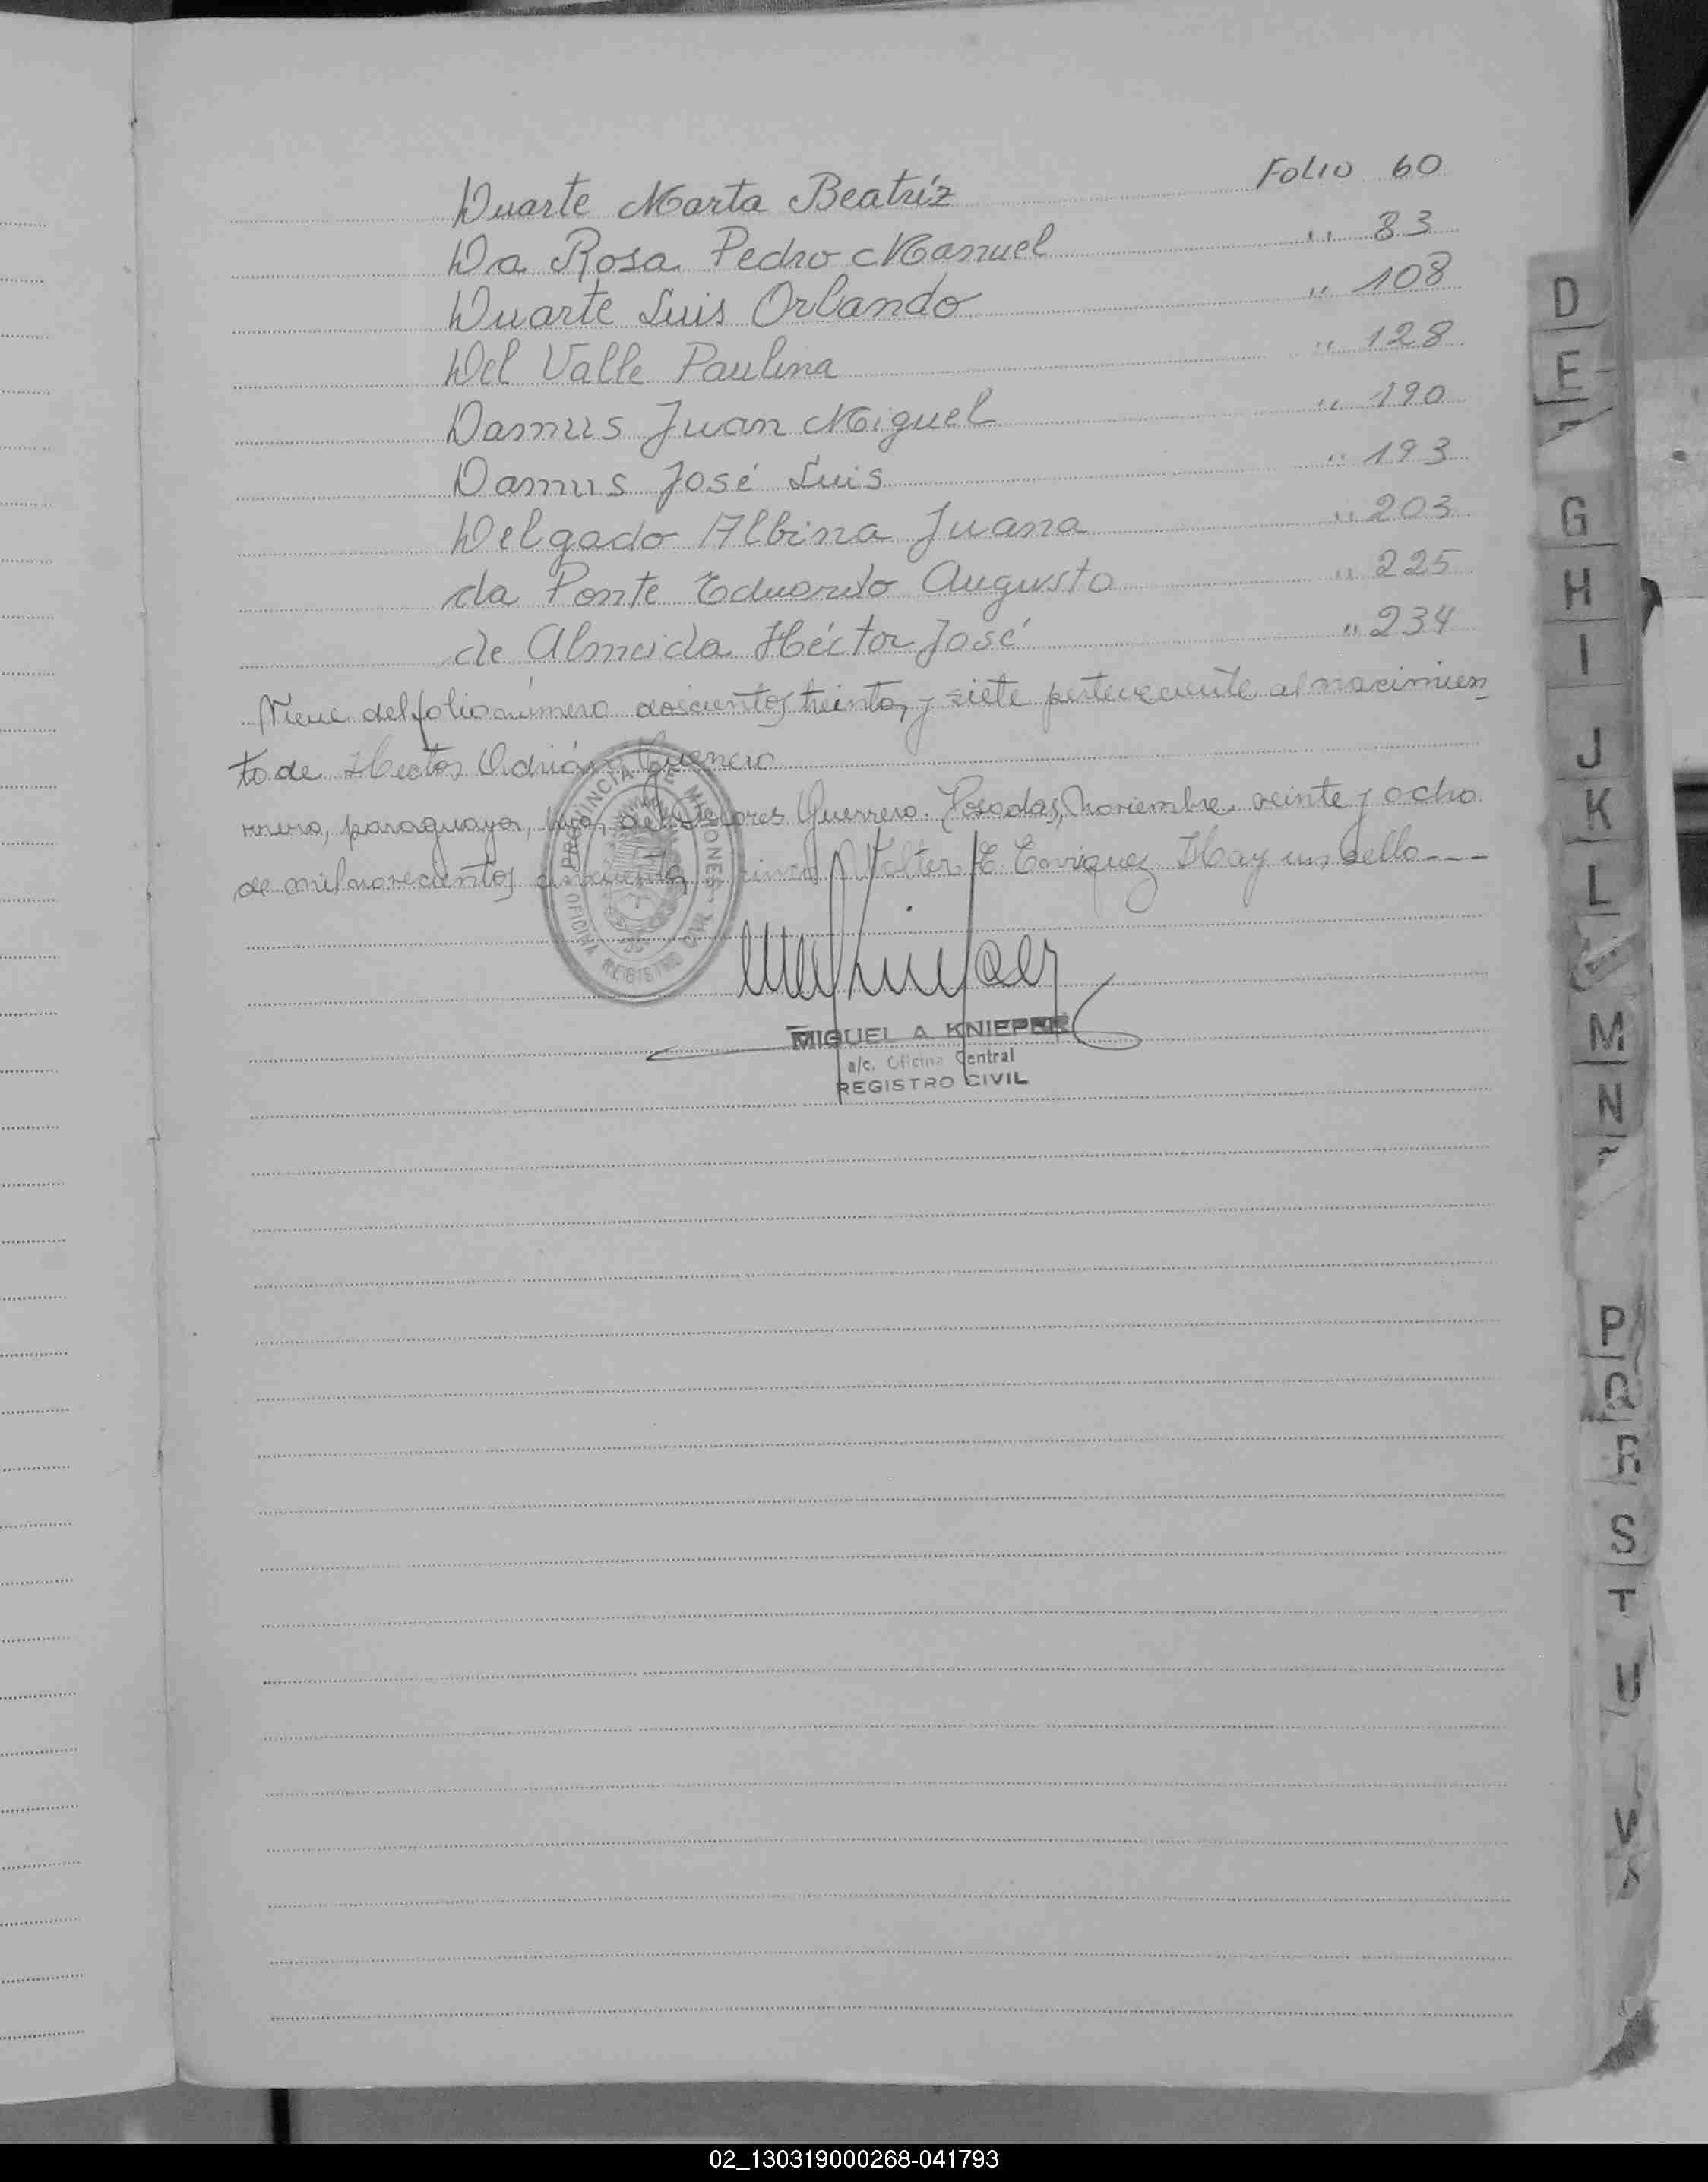 Duarte Marta Beatriz Folio 60
Da Rosa Pedro Manuel " 83
Duarte Luis Orlando " 108
Del Valle Paulina " 128
Damus Juan Miguel " 190
Damus José Luis " 193
Delgado Albina Juana " 203
da Ponte Eduardo Augusto " 225
de Almeida Héctor José " 234
Viene del folio número doscientos treinta y siete perteneciente al nacimien
to de Hector Adrián Guerrero
paraguaya, hija de Dolores Guerrero. Posadas, Noviembre veinte y ocho
de mil novecientos cincuenta Walter E Enriquez Hay un sello ---
PROVINCIA DE MISIONES
OFICINA REGISTRO CIVIL
MIGUEL A. KNIEPER
a/c. Oficina Central
REGISTRO CIVIL
D
E
F
G
H
I
J
K
L
M
N
P
Q
R
S
T
U
V
02_130319000268-041793